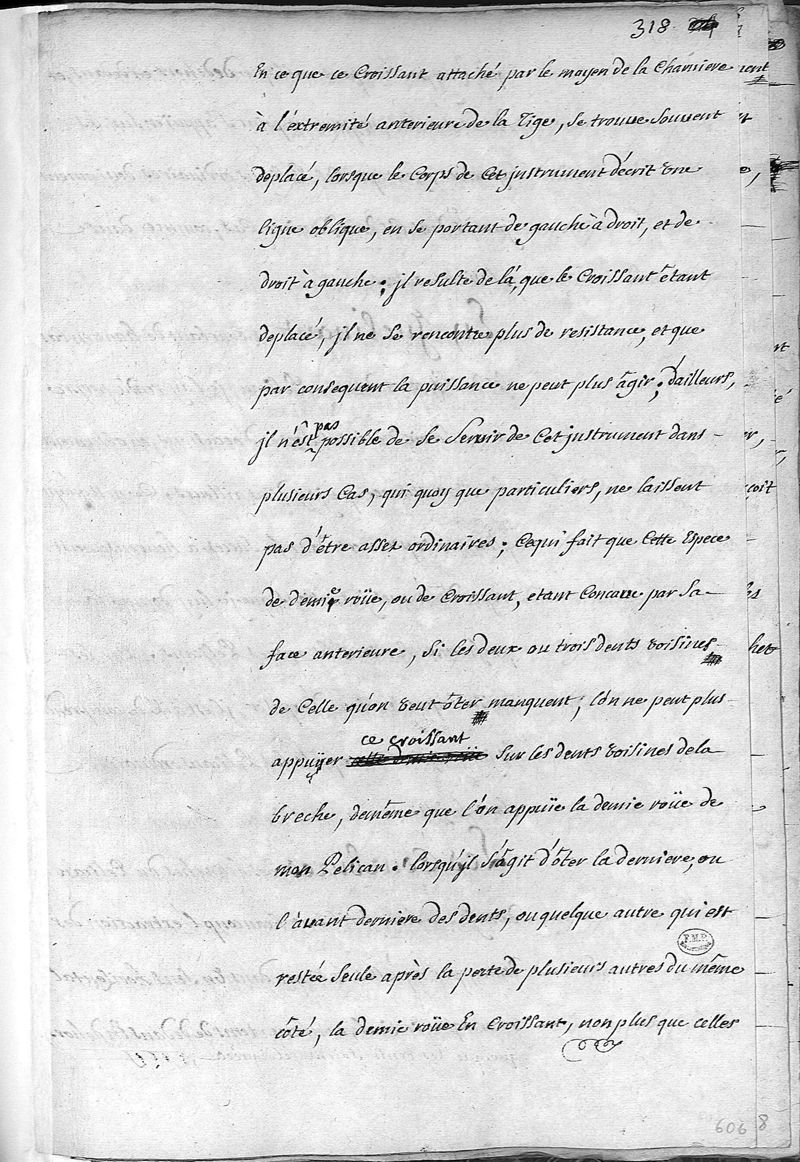 318
En ce que ce Croissant attaché par le moyen de la Charniere
à l'éxtremité anterieure de la Tige, se trouve souvent
deplacé, lorsque le Corps de Cet jnstrument décrit une
ligne oblique, en se portant de gauche à droit, et de
droit à gauche; jl resulte de là, que le Croissant étant
deplacé, jl ne se rencontre plus de resistance, et que
par consequent la puissance ne peut plus âgir; d'ailleurs,
pas
jl n'est possible de se Servir de Cet jnstrument dans
plusieurs Cas, qui quoy que particuliers, ne laissent
pas d'être assez ordinaires; Ce qui fait que Cette Espece
de demie roüe, ou de Croissant, etant Concave par sa
face anterieure, Si les deux ou trois dents voisines
de Celle qu'on veut ôter manquent; l'on ne peut plus
ce croissant
appuÿer sur les dents voisines de la
breche, de même que l'on appuïe la demie roüe de
mon Pelican. lorsqu'jl s'âgit d'ôter la derniere, ou
l'avant derniere des dents, ou quelque autre qui est
restée seule après la perte de plusieurs autres du même
côté, la demie roüe En Croissant, non plus que celles
606
8